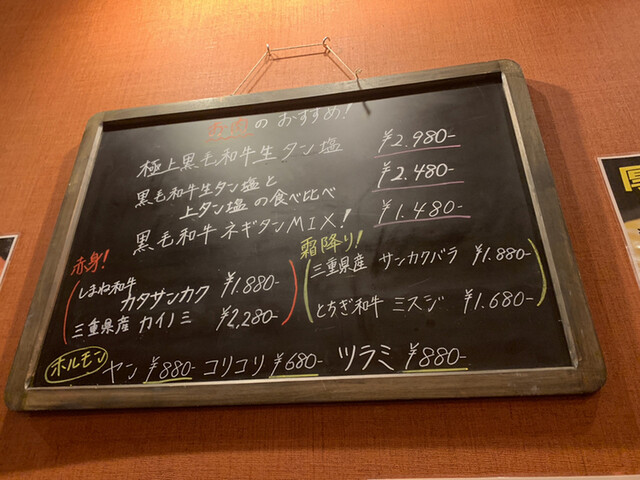 のおすすめ!
極上黒毛和牛生タン塩 ¥2.980-
黒毛和牛生タン塩と
上タン塩の食べ比べ ¥2.480-
黒毛和牛ネギタンMIX! ¥1.480-
赤身!
しまね和牛
カタサンカク ¥1.880-
三重県産 カイノミ ¥2,280-
霜降り!
三重県産 サンカクバラ ¥1.880-
とちぎ和牛 ミスジ ¥1.680-
ホルモン ヤン ¥880- コリコリ ¥680- ツラミ ¥880-
厚